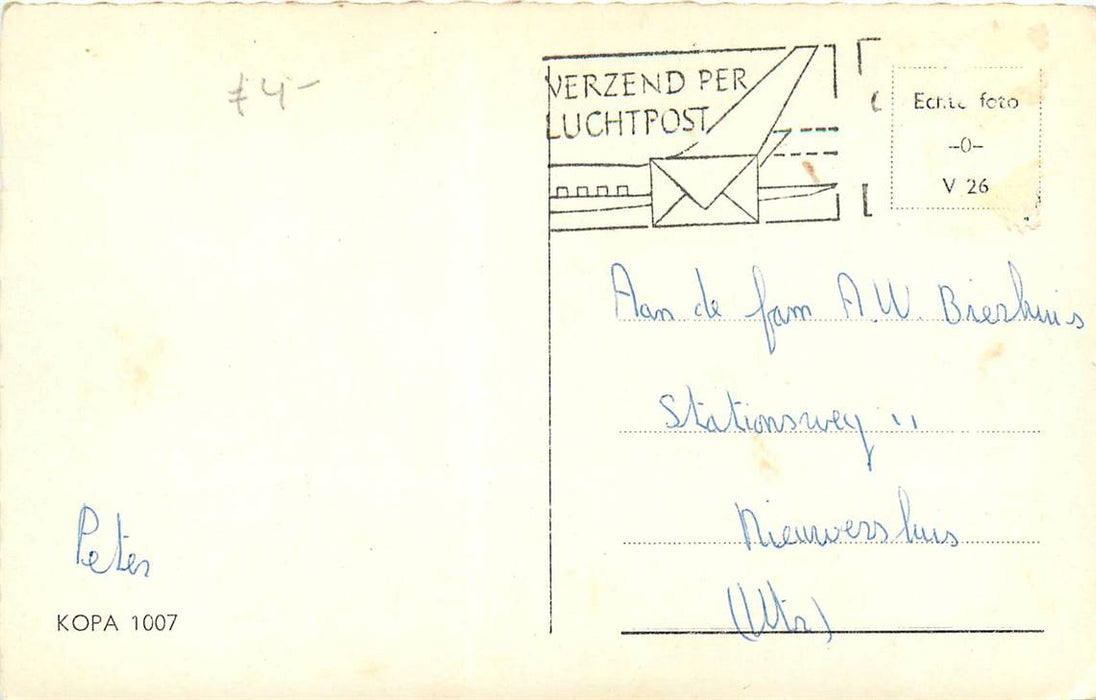 € 4,-
VERZEND PER
LUCHTPOST
Echte foto
-0-
V 26
Aan de fam A.W. Bierhuis
Stationsweg 11
Nieuwersluis
(Utr)
Peter
KOPA 1007